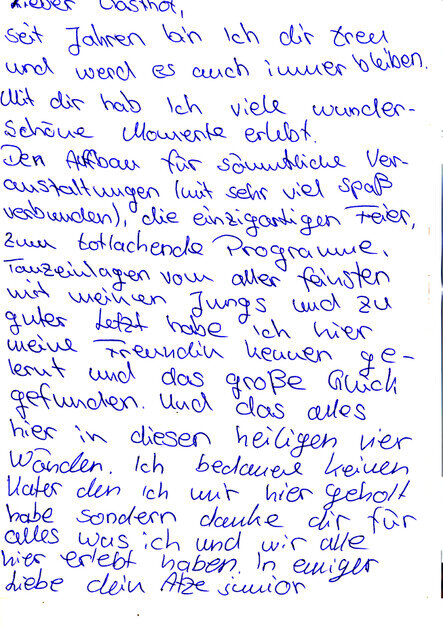 Lieber Gasthof,
seit Jahren bin Ich dir treu
und werd es auch immer bleiben.
Mit dir hab Ich viele wunder-
schöne Momente erlebt.
Den Aufbau für sämtliche Ver-
anstaltungen (mit sehr viel Spaß
verbunden), die einzigartigen Feier,
zum totlachende Programme,
Tanzeinlagen vom aller feinsten
mit meinen Jungs und zu
guter Letzt habe ich hier
meine Freundin kennen ge-
lernt und das große Glück
gefunden. Und das alles
hier in diesen heiligen vier
Wänden. Ich bedauere keinen
Kater den ich mir hier geholt
habe sondern danke dir für
alles was ich und wir alle
hier erlebt haben. In ewiger
Liebe dein Atze junior